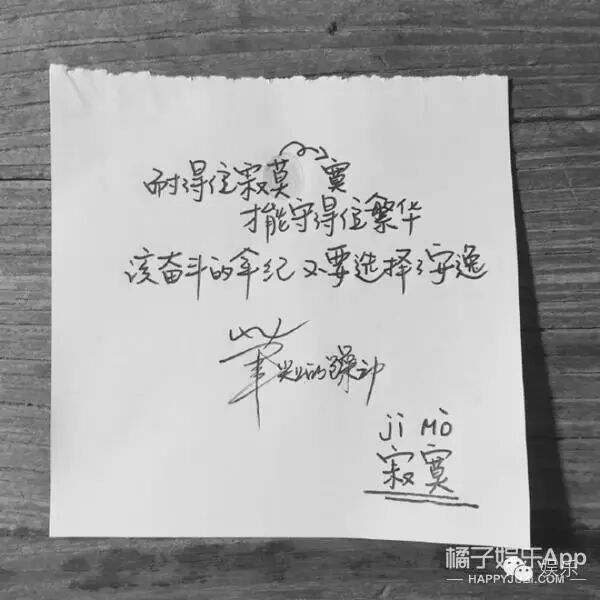 耐得住寂莫 寞
才能守得住繁华
该奋斗的年纪不要选择了安逸
笔尖的躁动
jì Mò
寂寞
橘子娱乐App
HAPPYJUZI.COM
娱乐